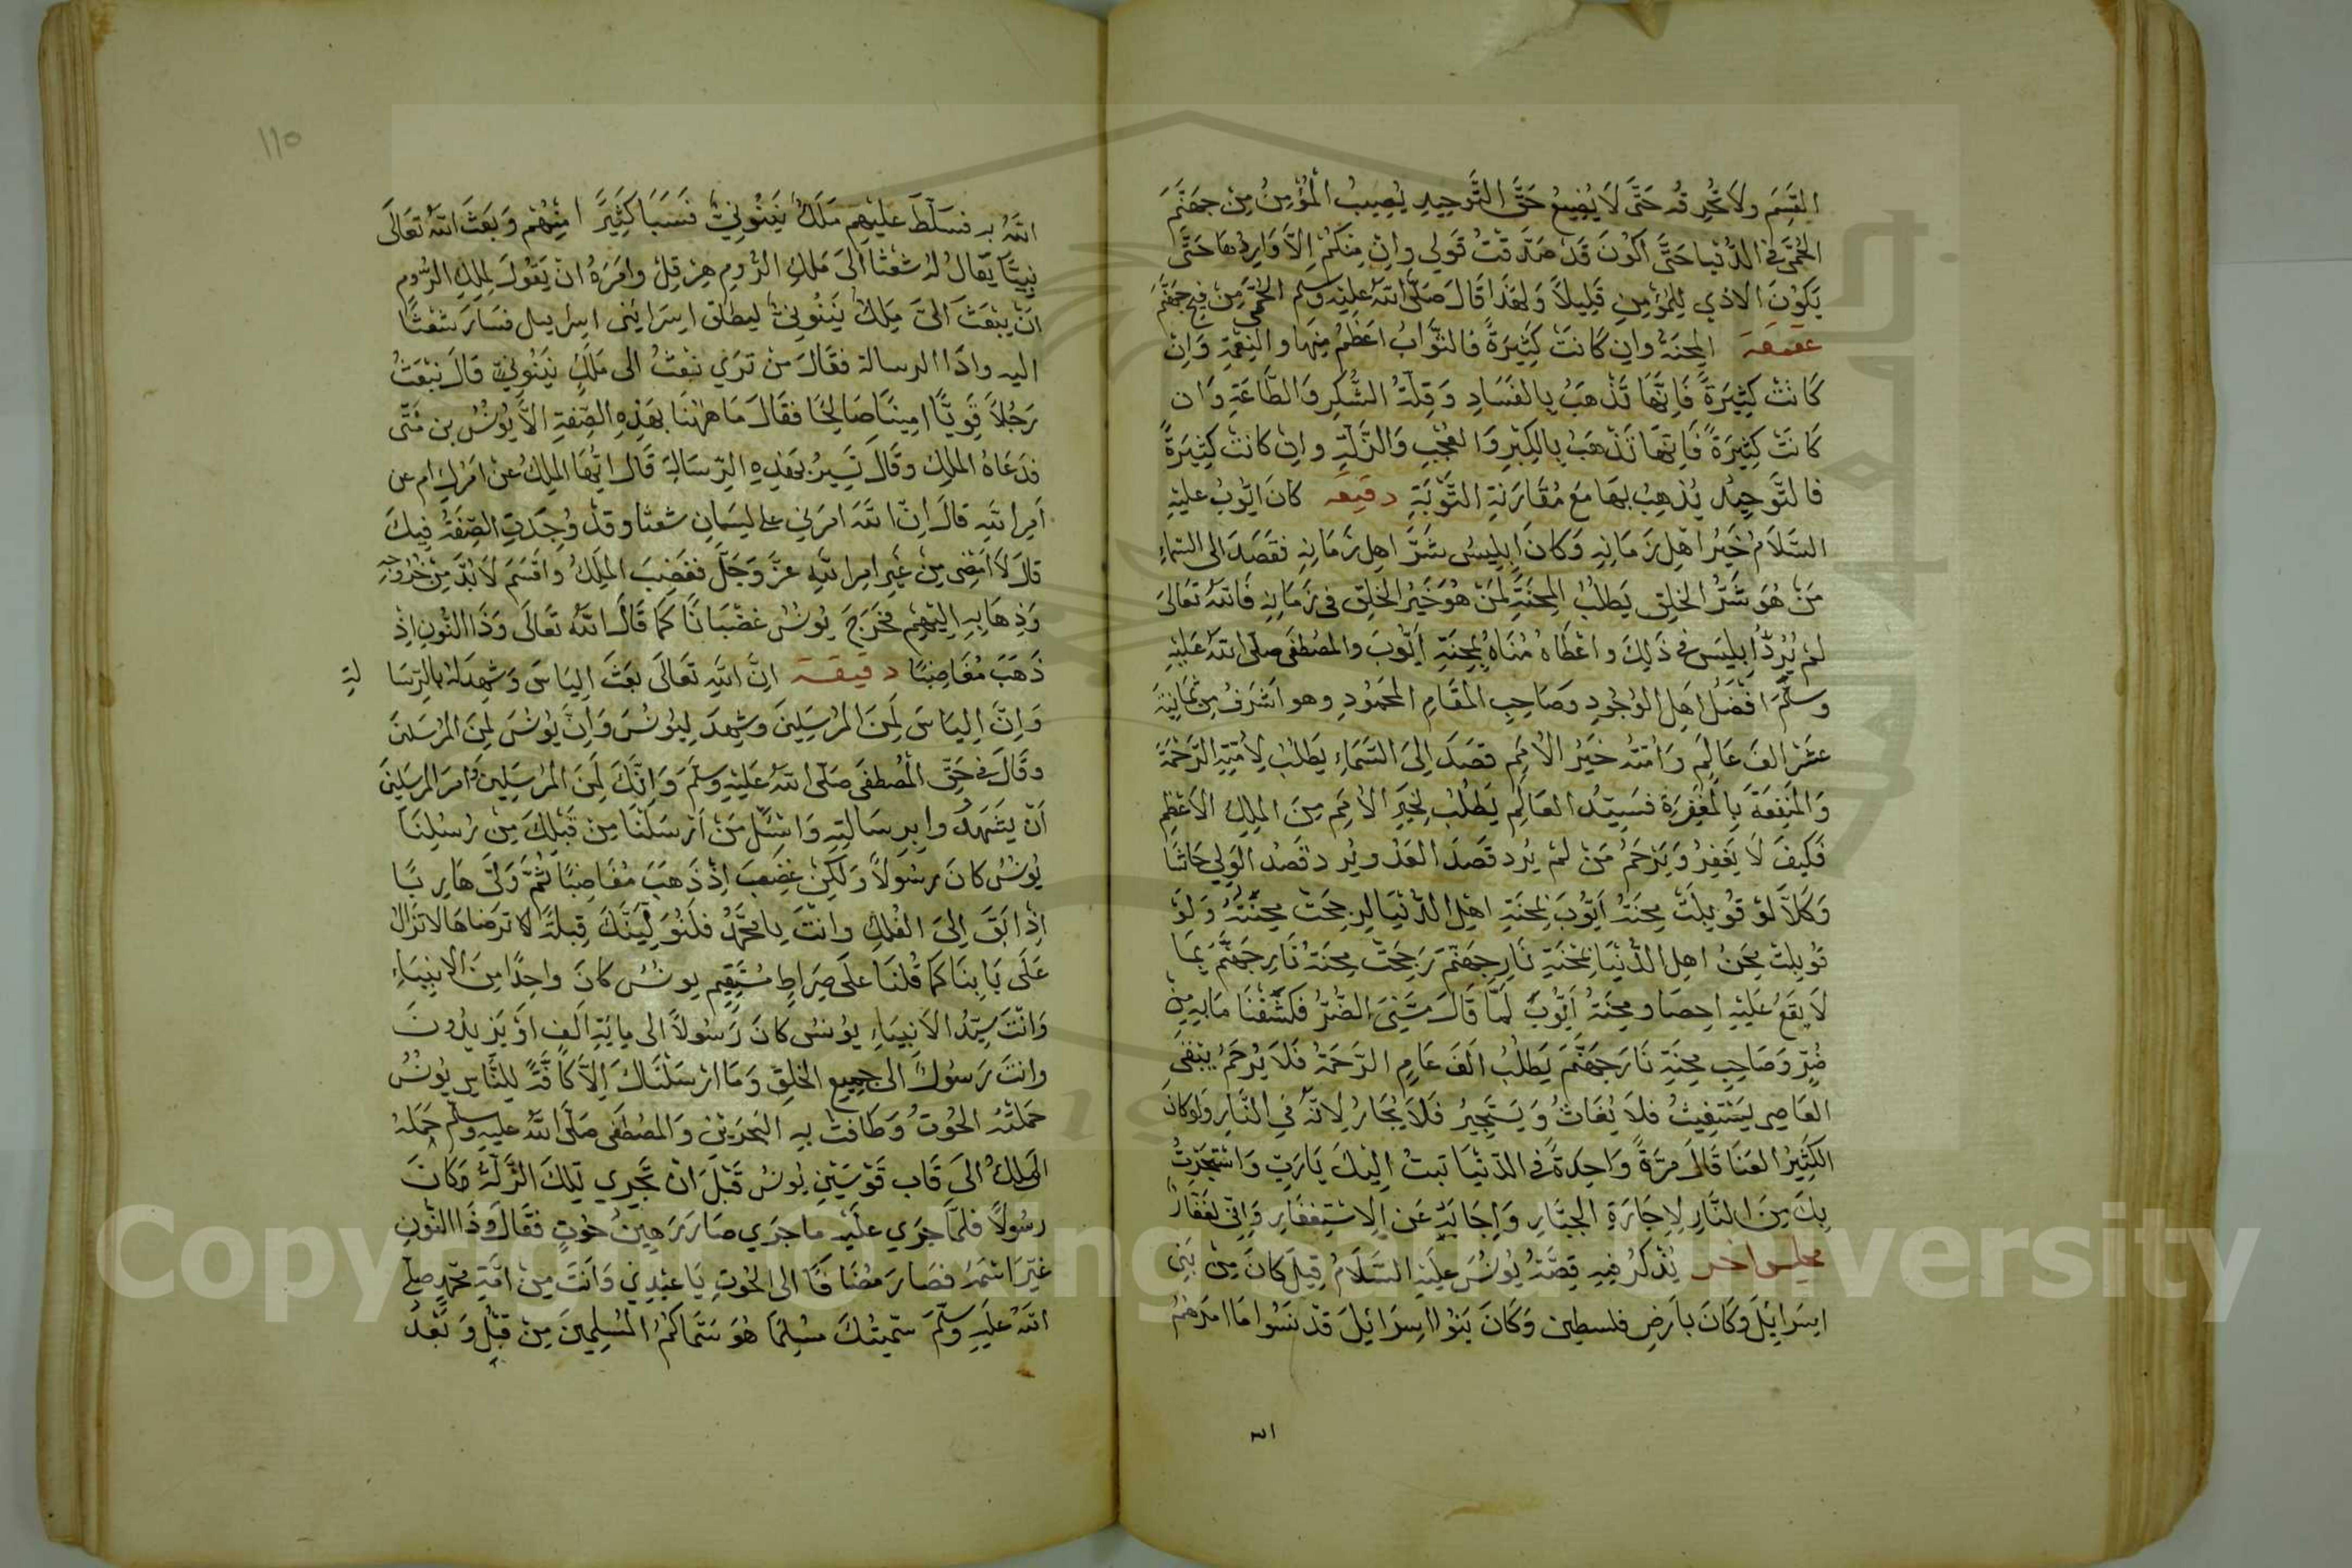 القسم ولا تحرقه حتى لا يضيع حق التوحيد يصيب المؤمن من جهنم
الحمى في الدنيا حتى اكون قد صدقت قولي وان منكم الا واردها حتى
يكون الاذي للمؤمن قليلا ولهذا قال صلى الله عليه وسلم الحمى من فيح جهنم
المحنة وان كانت كثيرة فالثواب اعظم منها والنعمة وان
كانت كثيرة فانها تذهب بالفساد وقلة الشكر والطاعة وان
كانت كثيرة فانها تذهب بالكبر والعجب والزلة وان كانت كثيرة
فالتوحيد يذهب بها مع مقارنة التوبة دقيقه كان ايوب عليه
السلام خير اهل زمانه وكان ابليس شر اهل زمانه فقصد الى السماء
من هو شر الخلق يطلب المحنة لمن هو خير الخلق في زمانه فالله تعالى
لم يرد ابليس في ذلك واعطاه مناه بمحنة ايوب والمصطفى صلى الله عليه
وسلم افضل اهل الوجود وصاحب المقام المحمود وهو اشرف من ثمانية
عشر الف عالم وامته خير الامم قصد الى السماء يطلب لامته الرحمة
والمنفعة بالمغفرة فسيد العالم يطلب لخير الامم من الملك الاعظم
فكيف لا يغفر ويرحم من لم يرد قصد العدو يرد قصد الولي حاشا
وكلا لو قوبلت محنة ايوب بمحنة اهل الدنيا لرجحت محنته ولو
قوبلت محن اهل الدنيا بمحنة نار جهنم رجحت محنة نار جهنم بما
لا يقع عليه احصا ومحنة ايوب لما قال مسني الضر فكشفنا ما به من
ضر وصاحب محنة نار جهنم يطلب الف عام الرحمة فلا يرحم يبقى
العاصي يستغيث فلا يغاث ويستجير فلا يجار لانه في النار ولو كان
الكثير العنا قال مرة واحدة في الدنيا تبت اليك يا رب واستجرت
بك من النار لاجارة الجبار واجابه عن الاستغفار واني لغفار
مجلس اخر يذكر فيه قصة يونس عليه السلام قيل كان من بني
اسرائيل وكان بارض فلسطين وكان بنوا اسرائيل قد نسوا ما امرهم
الله
١١٥
الله به فسلط عليهم ملك نينوني فسبا كثيرا منهم وبعث الله تعالى
نبيا يقال له شعثا الى ملك الروم هزقل وامره ان يقول لملك الروم
ان يبعث الى ملك نينوني ليطلق اسرا بني اسرايل فسار شعثا
اليه واذا الرسالة فقال من تري نبعث الى ملك نينوني قال نبعث
رجلا قويا امينا صالحا فقال ما ههنا بهذه الصفة الا يونس بن متى
فدعاه الملك وقال تسير بهذه الرسالة قال ايها الملك عن امرك ام عن
امر الله قال ان الله امرني على لسان شعثا وقد وجدت الصفة فيك
قال لا امضى من غير امر الله عز وجل فغضب الملك واقسم لا بد من خروجه
وذهابه اليهم فخرج يونس غضبانا كما قال الله تعالى وذا النون اذ
ذهب مغاضبا دقيقة ان الله تعالى بعث الياس وشهد له بالرسا لة
وان الياس لمن المرسلين وشهد ليونس وان يونس لمن المرسلين
وقال في حق المصطفى صلى الله عليه وسلم وانك لمن المرسلين وامر المرسلين
ان يشهدوا برسالته واسئل من ارسلنا من قبلك من رسلنا
يونس كان رسولا ولكن غضب اذ ذهب مغاضبا ثم ولى هاربا
اذ ابق الى الفلك وانت يا محمد فلنولينك قبلة ترضاها لا تزال
على بابنا كما قلنا على صراط مستقيم يونس كان واحدا من الانبياء
وانت سيد الانبياء يونس كان رسولا الى ماية الف او يزيدون
وانت رسول الى جميع الخلق وما ارسلناك الا كافة للناس يونس
حملته الحوت وطافت به البحرين والمصطفى صلى الله عليه وسلم حمله
الملك الى قاب قوسين يونس قبل ان تجري تلك الزلة وكان
رسولا فلما جري عليه ما جري صار رهين حوت فقال وذا النون
غير اسمه فصار مضافا الى الحوت يا عبدي وانت من امة محمد صلى
الله عليه وسلم سميتك مسلما هو سماكم المسلمين من قبل وبعد
Copyright © King Saud University